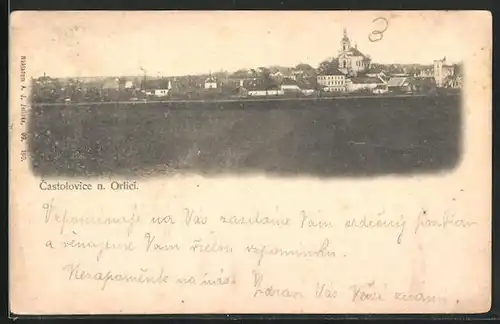 3
Nakladem A. J.
Častolovice n. Orlicí.
Vzpomínaje na Vás zasíláme Vám srdečný pozdrav
a věnujeme Vám vzpomínku.
Nezapomeňte na nás.
Zdraví Vás Vaši známí